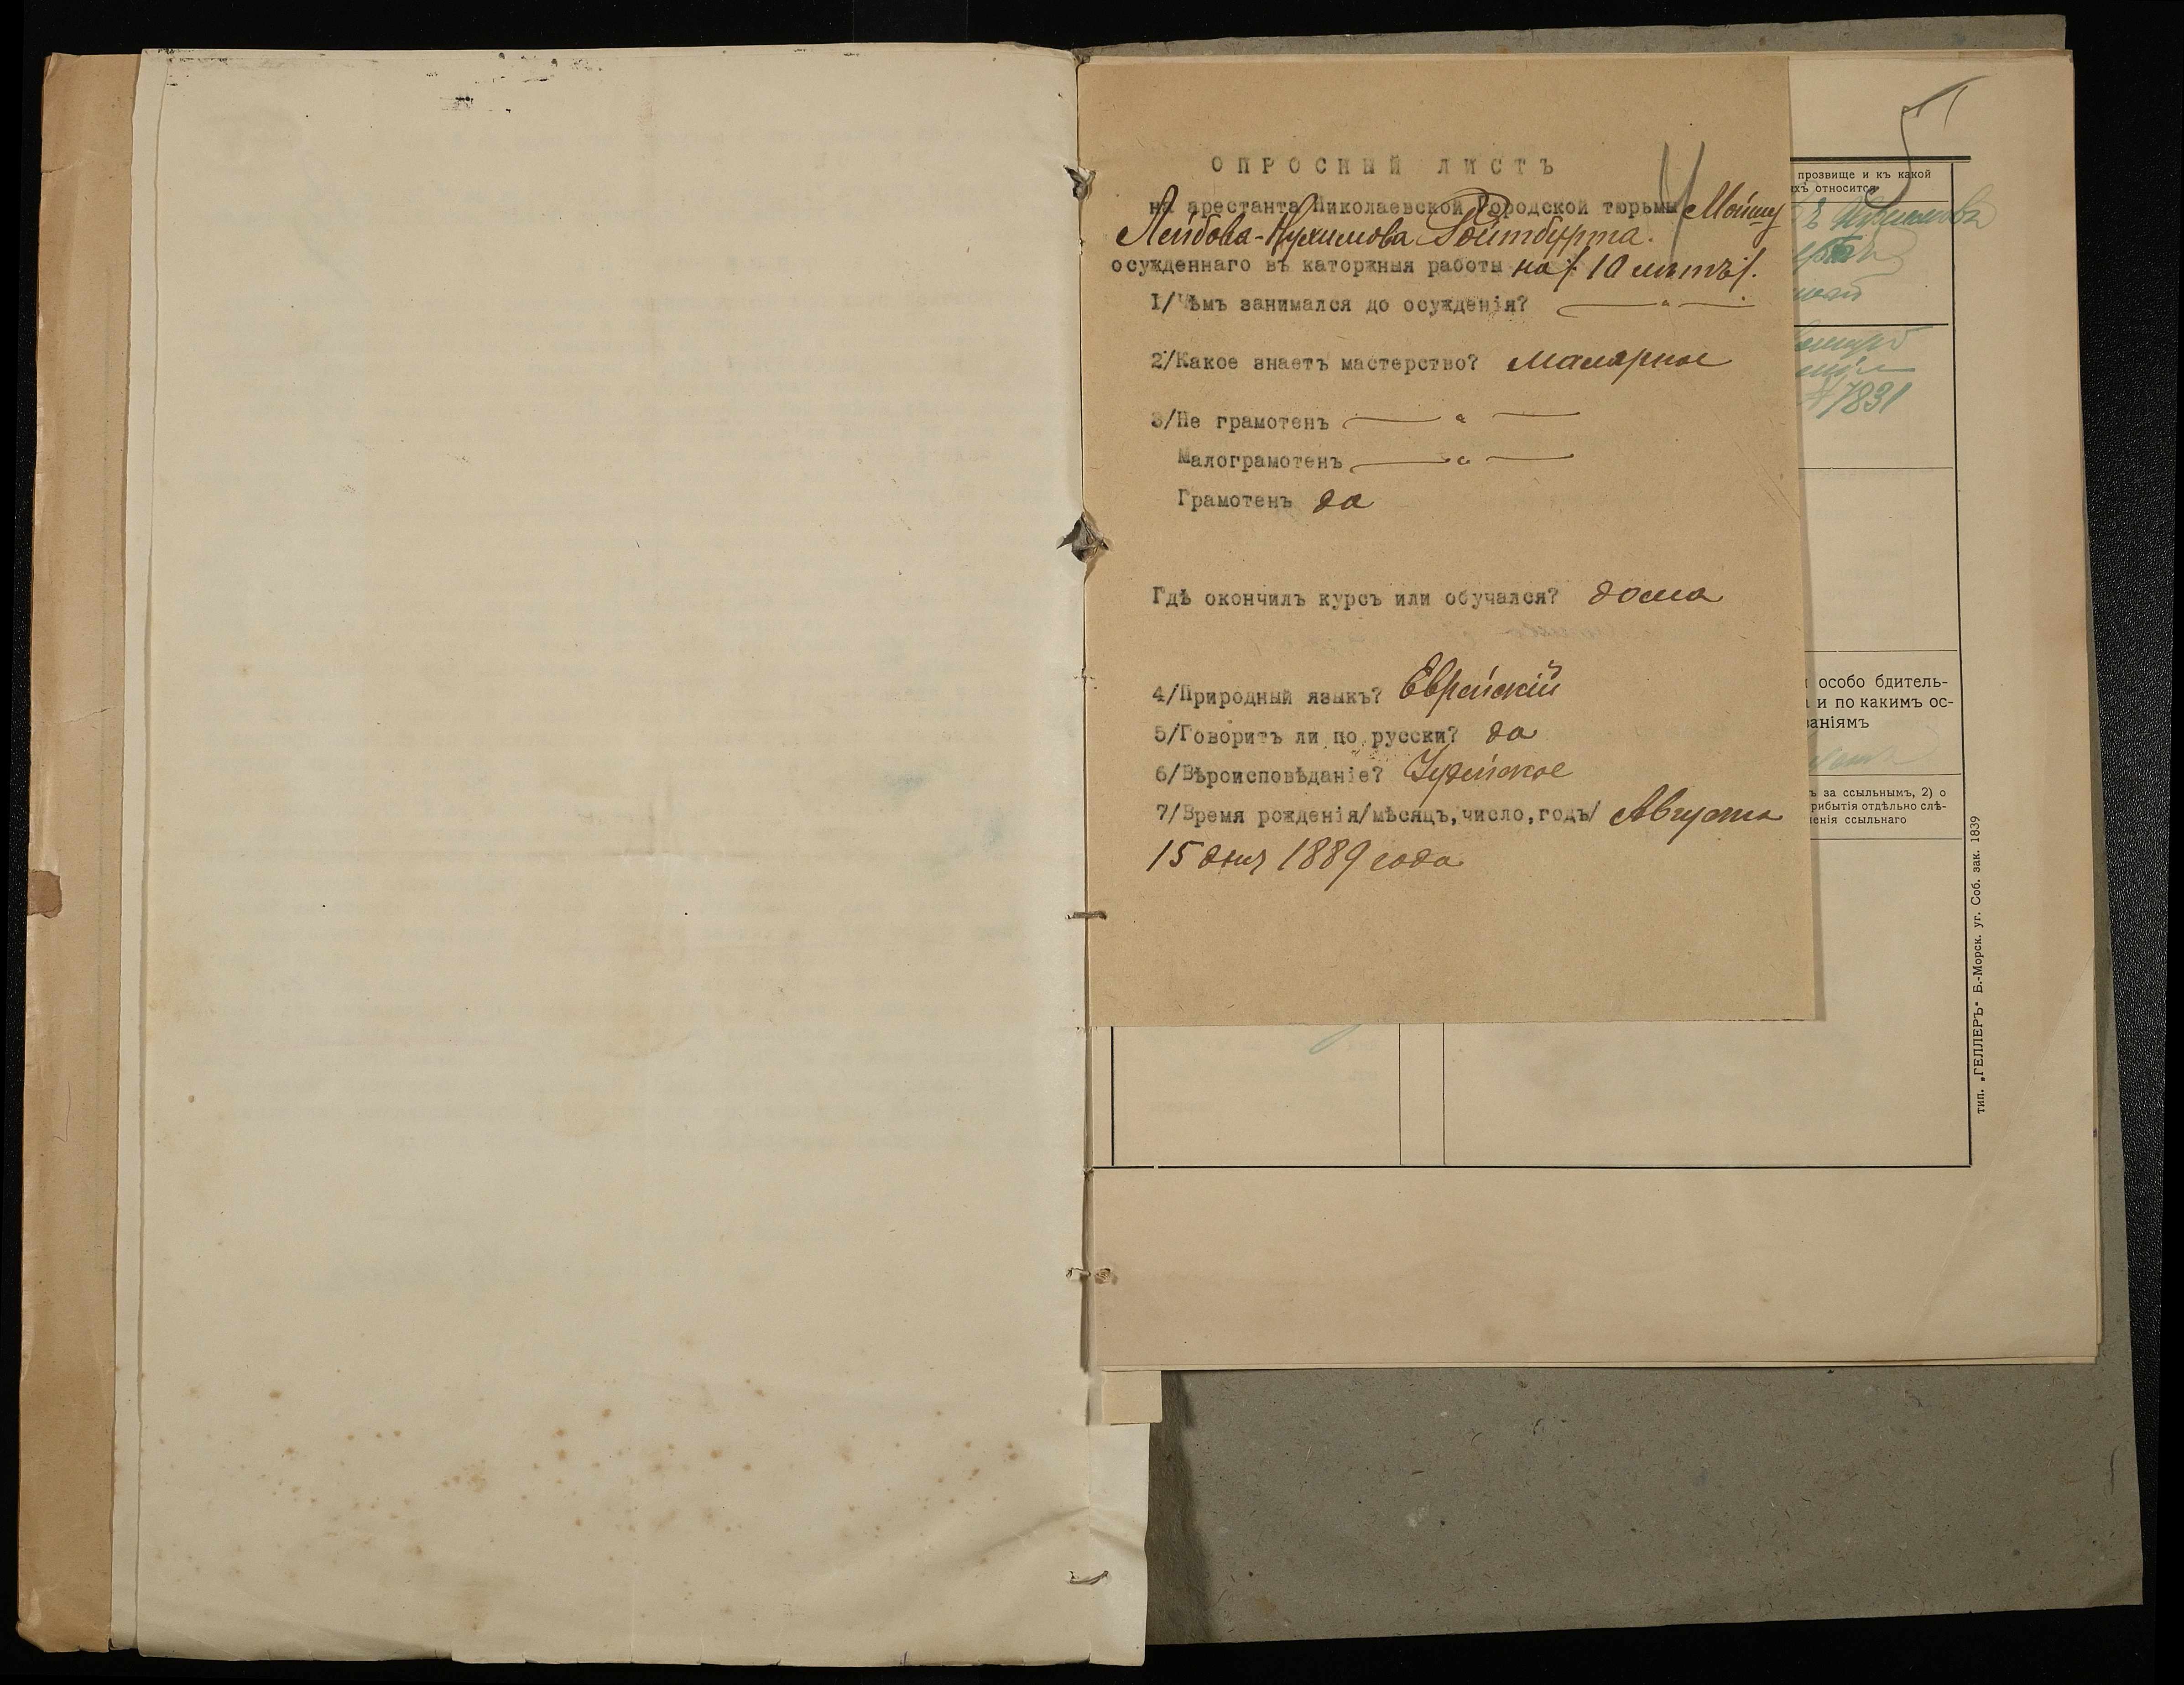 ОПРОСНЫЙ ЛИСТЪ
на арестанта Николаевской Городской тюрьмы Мойшу
Лейбова-Нухимова Ройтбурта.
осужденнаго въ каторжныя работы на /10 лѣтъ/.
1/Чѣмъ занимался до осужденія? — " —
2/Какое знаетъ мастерство? Малярное
3/Не грамотенъ — " —
Малограмотенъ — " —
Грамотенъ да
Гдѣ окончилъ курсъ или обучался? дома
4/Природный языкъ? Еврейскій
5/Говоритъ ли по русски? да
6/Вѣроисповѣданіе? Іудейское
7/Время рожденія/мѣсяцъ,число,годъ/ Августа
15 дня 1889 года
4
5
прозвище и къ какой
ихъ относится
7831
особо бдитель-
и по какимъ ос-
ваніямъ
ъ за ссыльнымъ, 2) о
рибытія отдѣльно слѣ-
ленія ссыльнаго
тип. „ГЕЛЛЕРЪ" Б.-Морск. уг. Соб. зак. 1839